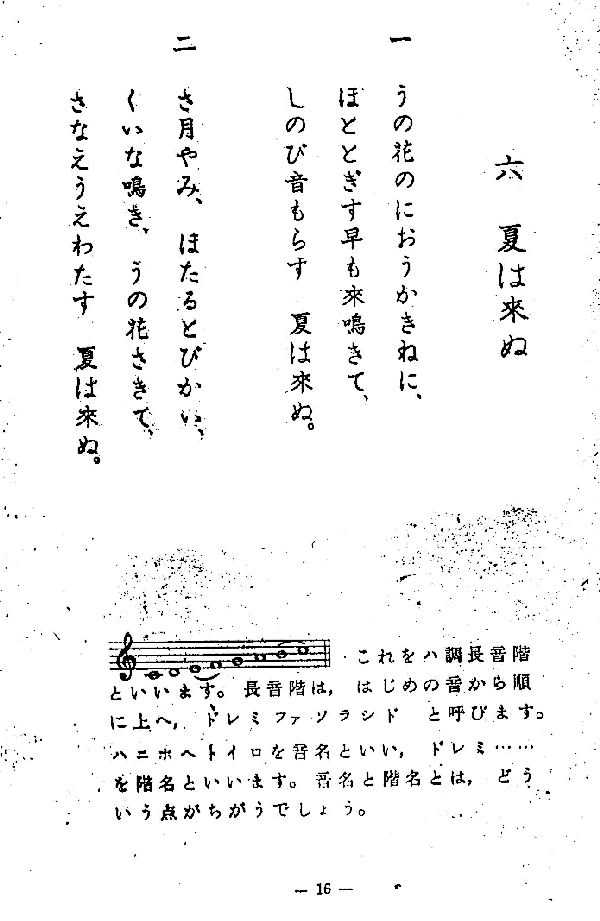 六　夏は來ぬ
一
うの花のにおうかきねに、
ほととぎす早も來鳴きて、
しのび音もらす　夏は來ぬ。
二
さ月やみ、ほたるとびかい、
くいな鳴き、うの花さきて、
さなえうえわたす　夏は來ぬ。
これをハ調長音階
といいます。長音階は，はじめの音から順
に上へ，ドレミファソラシド　と呼びます。
ハニホヘトイロを音名といい，ドレミ……
を階名といいます。音名と階名とは，どう
いう点がちがうでしょう。
— 16 —